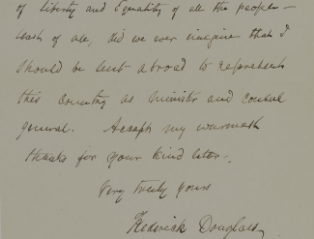 of liberty and Equality of all the people —
least of all, did we ever imagine that I
should be sent abroad to represent
this Country as Minister and consul
general. Accept my warmest
thanks for your kind letter.
Very truly yours
Frederick Douglass